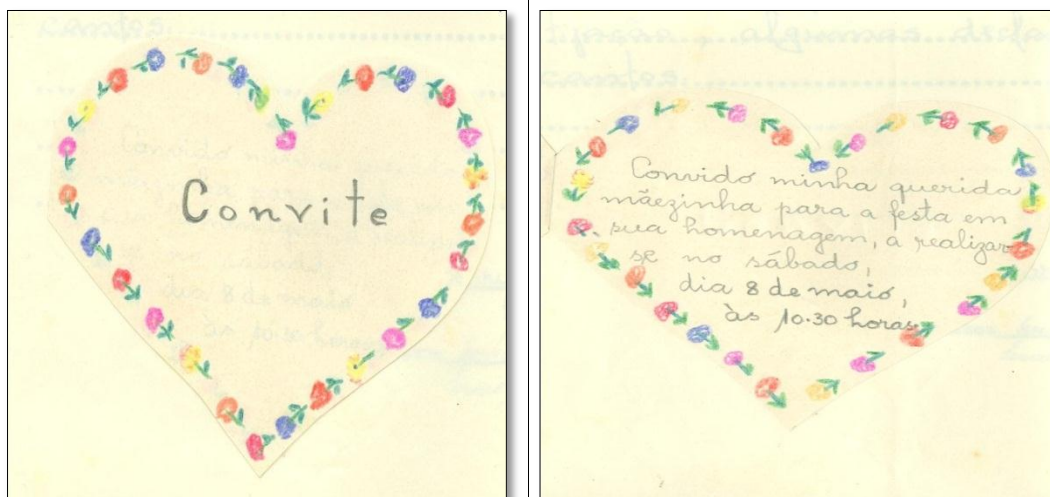 Convite
Convido minha querida
mãezinha para a festa em
sua homenagem, a realizar
se no sábado,
dia 8 de maio,
às 10.30 horas